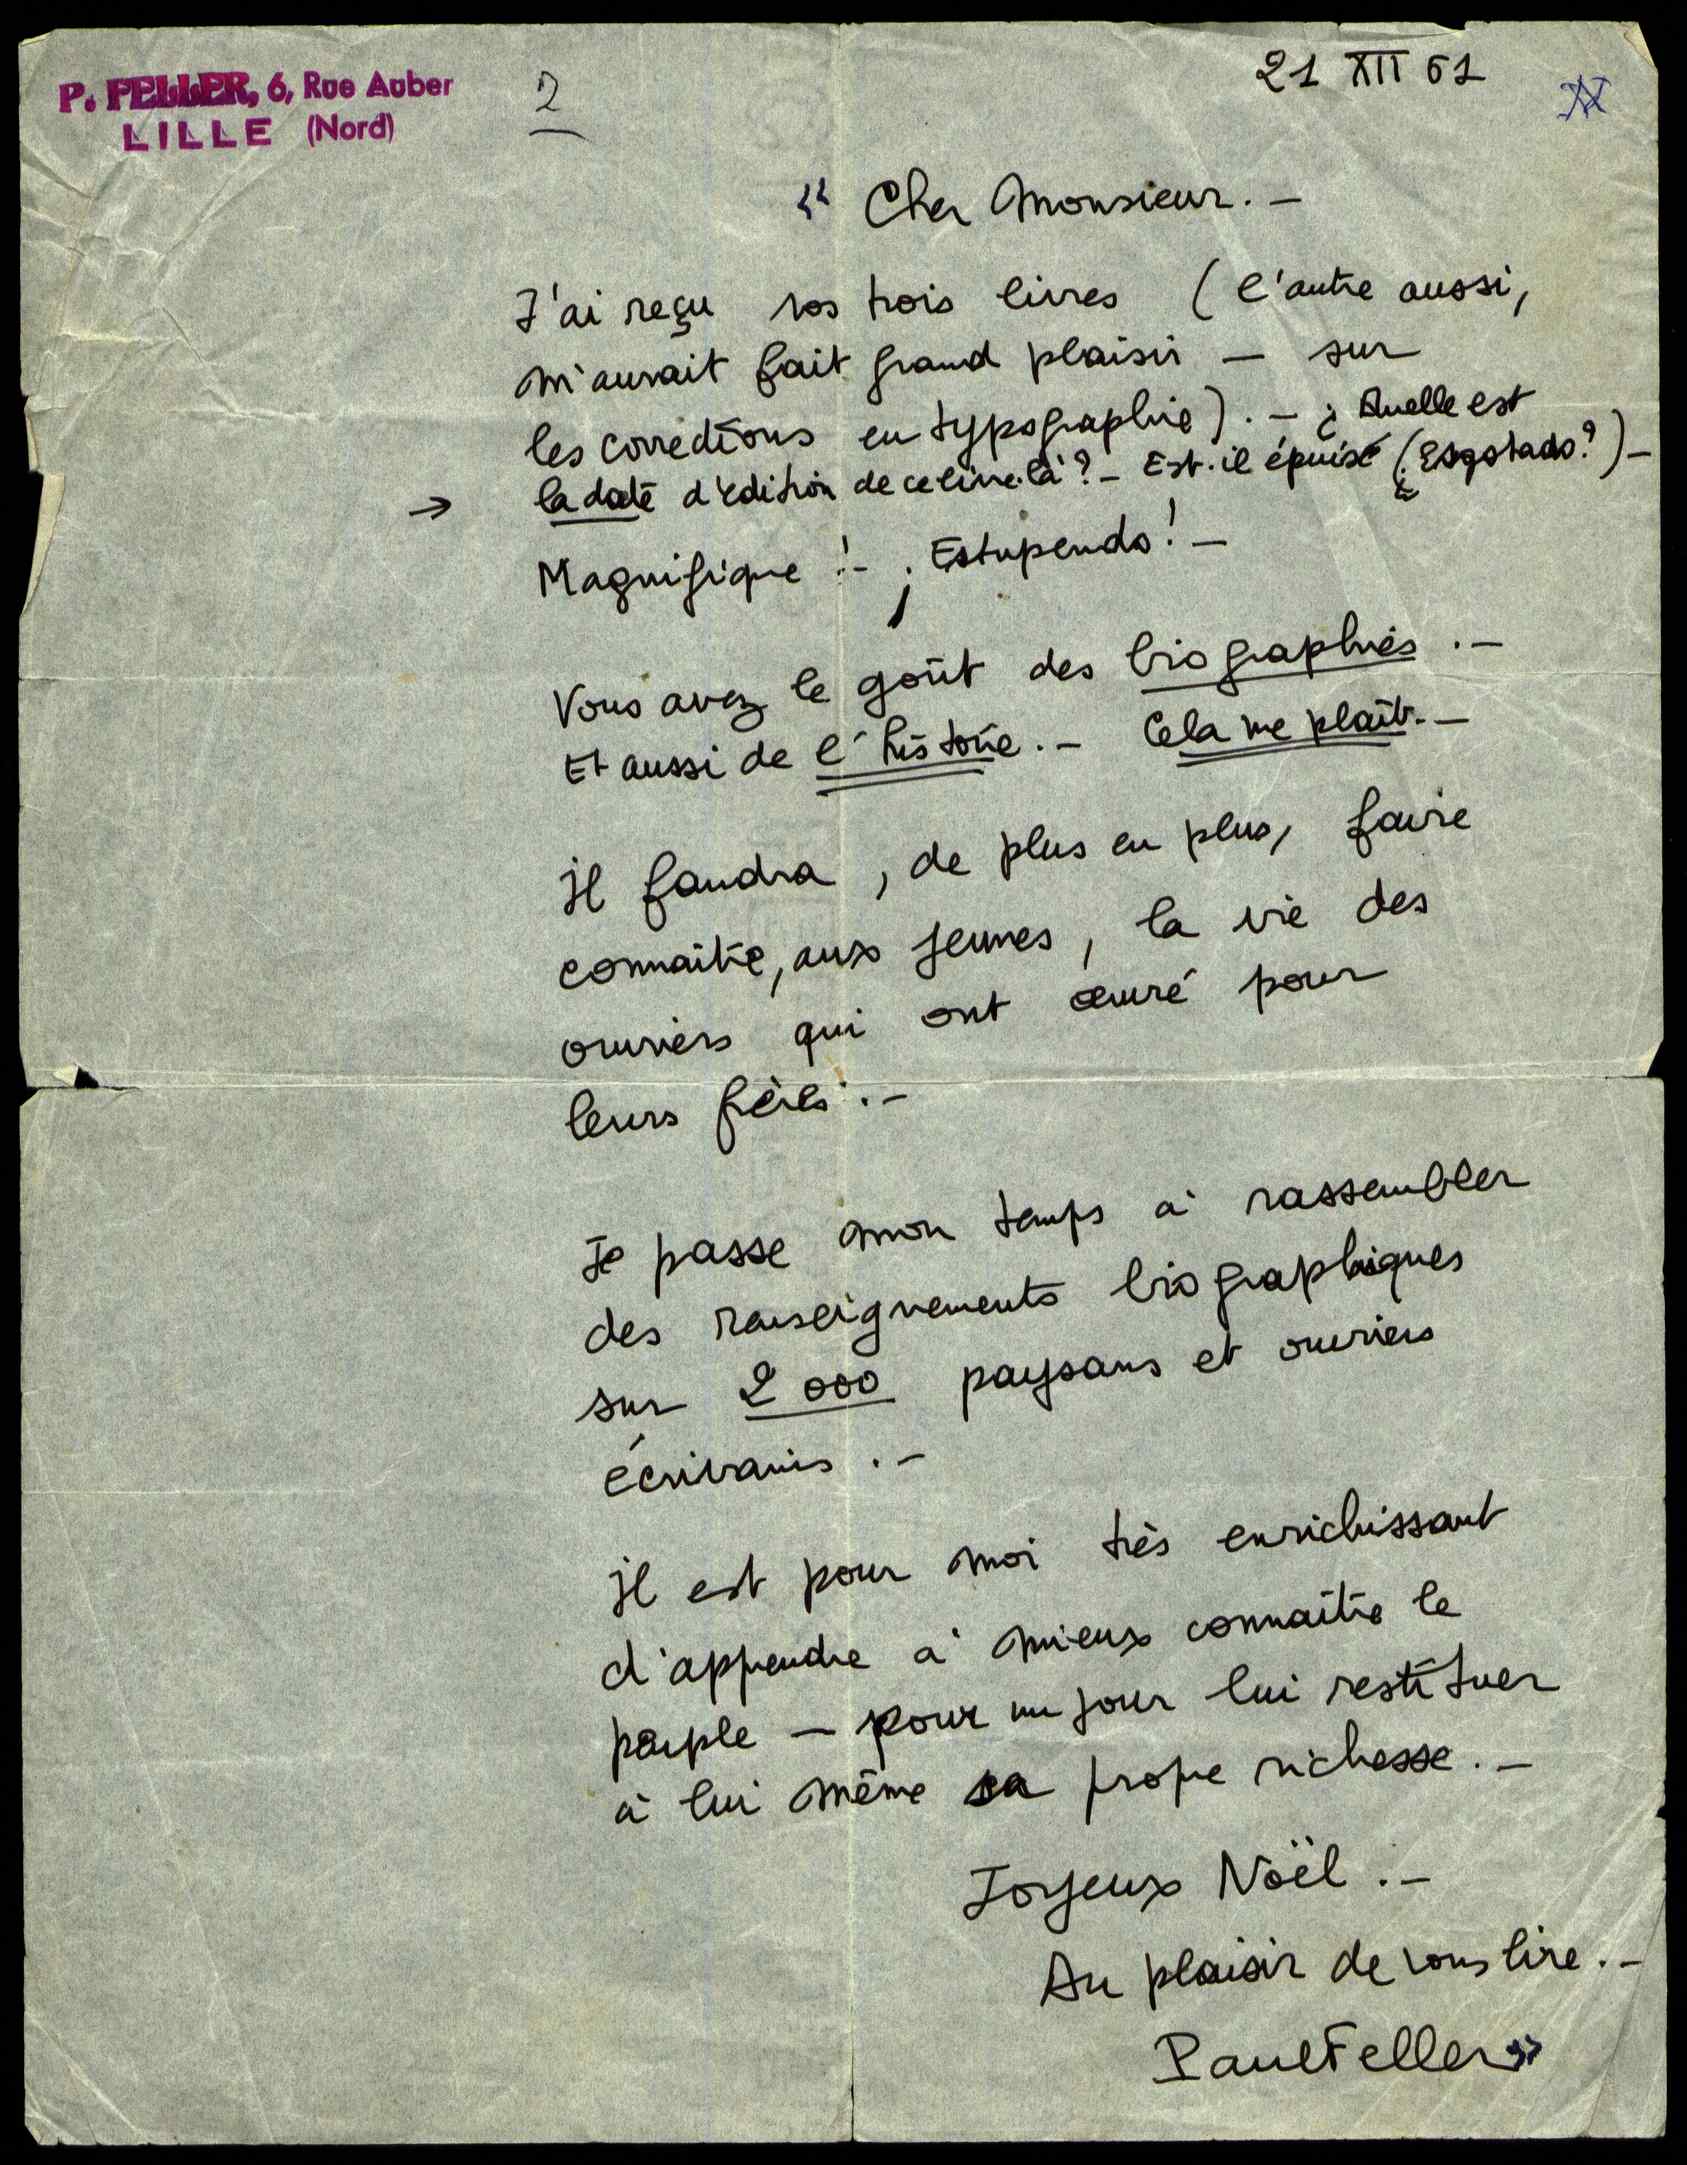 P. FELLER, 6, Rue Auber
LILLE (Nord)
2
21 XII 61
« Cher Monsieur. –
J'ai reçu vos trois livres (l'autre aussi,
m'aurait fait grand plaisir – sur
les corrections en typographie). – ¿ Quelle est
→ la date d'édition de ce livre-là ? – Est-il épuisé (¿ Esgotado ?) –
Magnifique ! – ¡ Estupendo ! –
Vous avez le goût des biographies. –
Et aussi de l'histoire. – Cela me plaît. –
Il faudra, de plus en plus, faire
connaître, aux jeunes, la vie des
ouvriers qui ont œuvré pour
leurs frères. –
Je passe mon temps à rassembler
des renseignements biographiques
sur 2 000 paysans et ouvriers
écrivains. –
Il est pour moi très enrichissant
d'apprendre à mieux connaître le
peuple – pour un jour lui restituer
à lui même sa propre richesse. –
Joyeux Noël. –
Au plaisir de vous lire. –
Paul Feller »